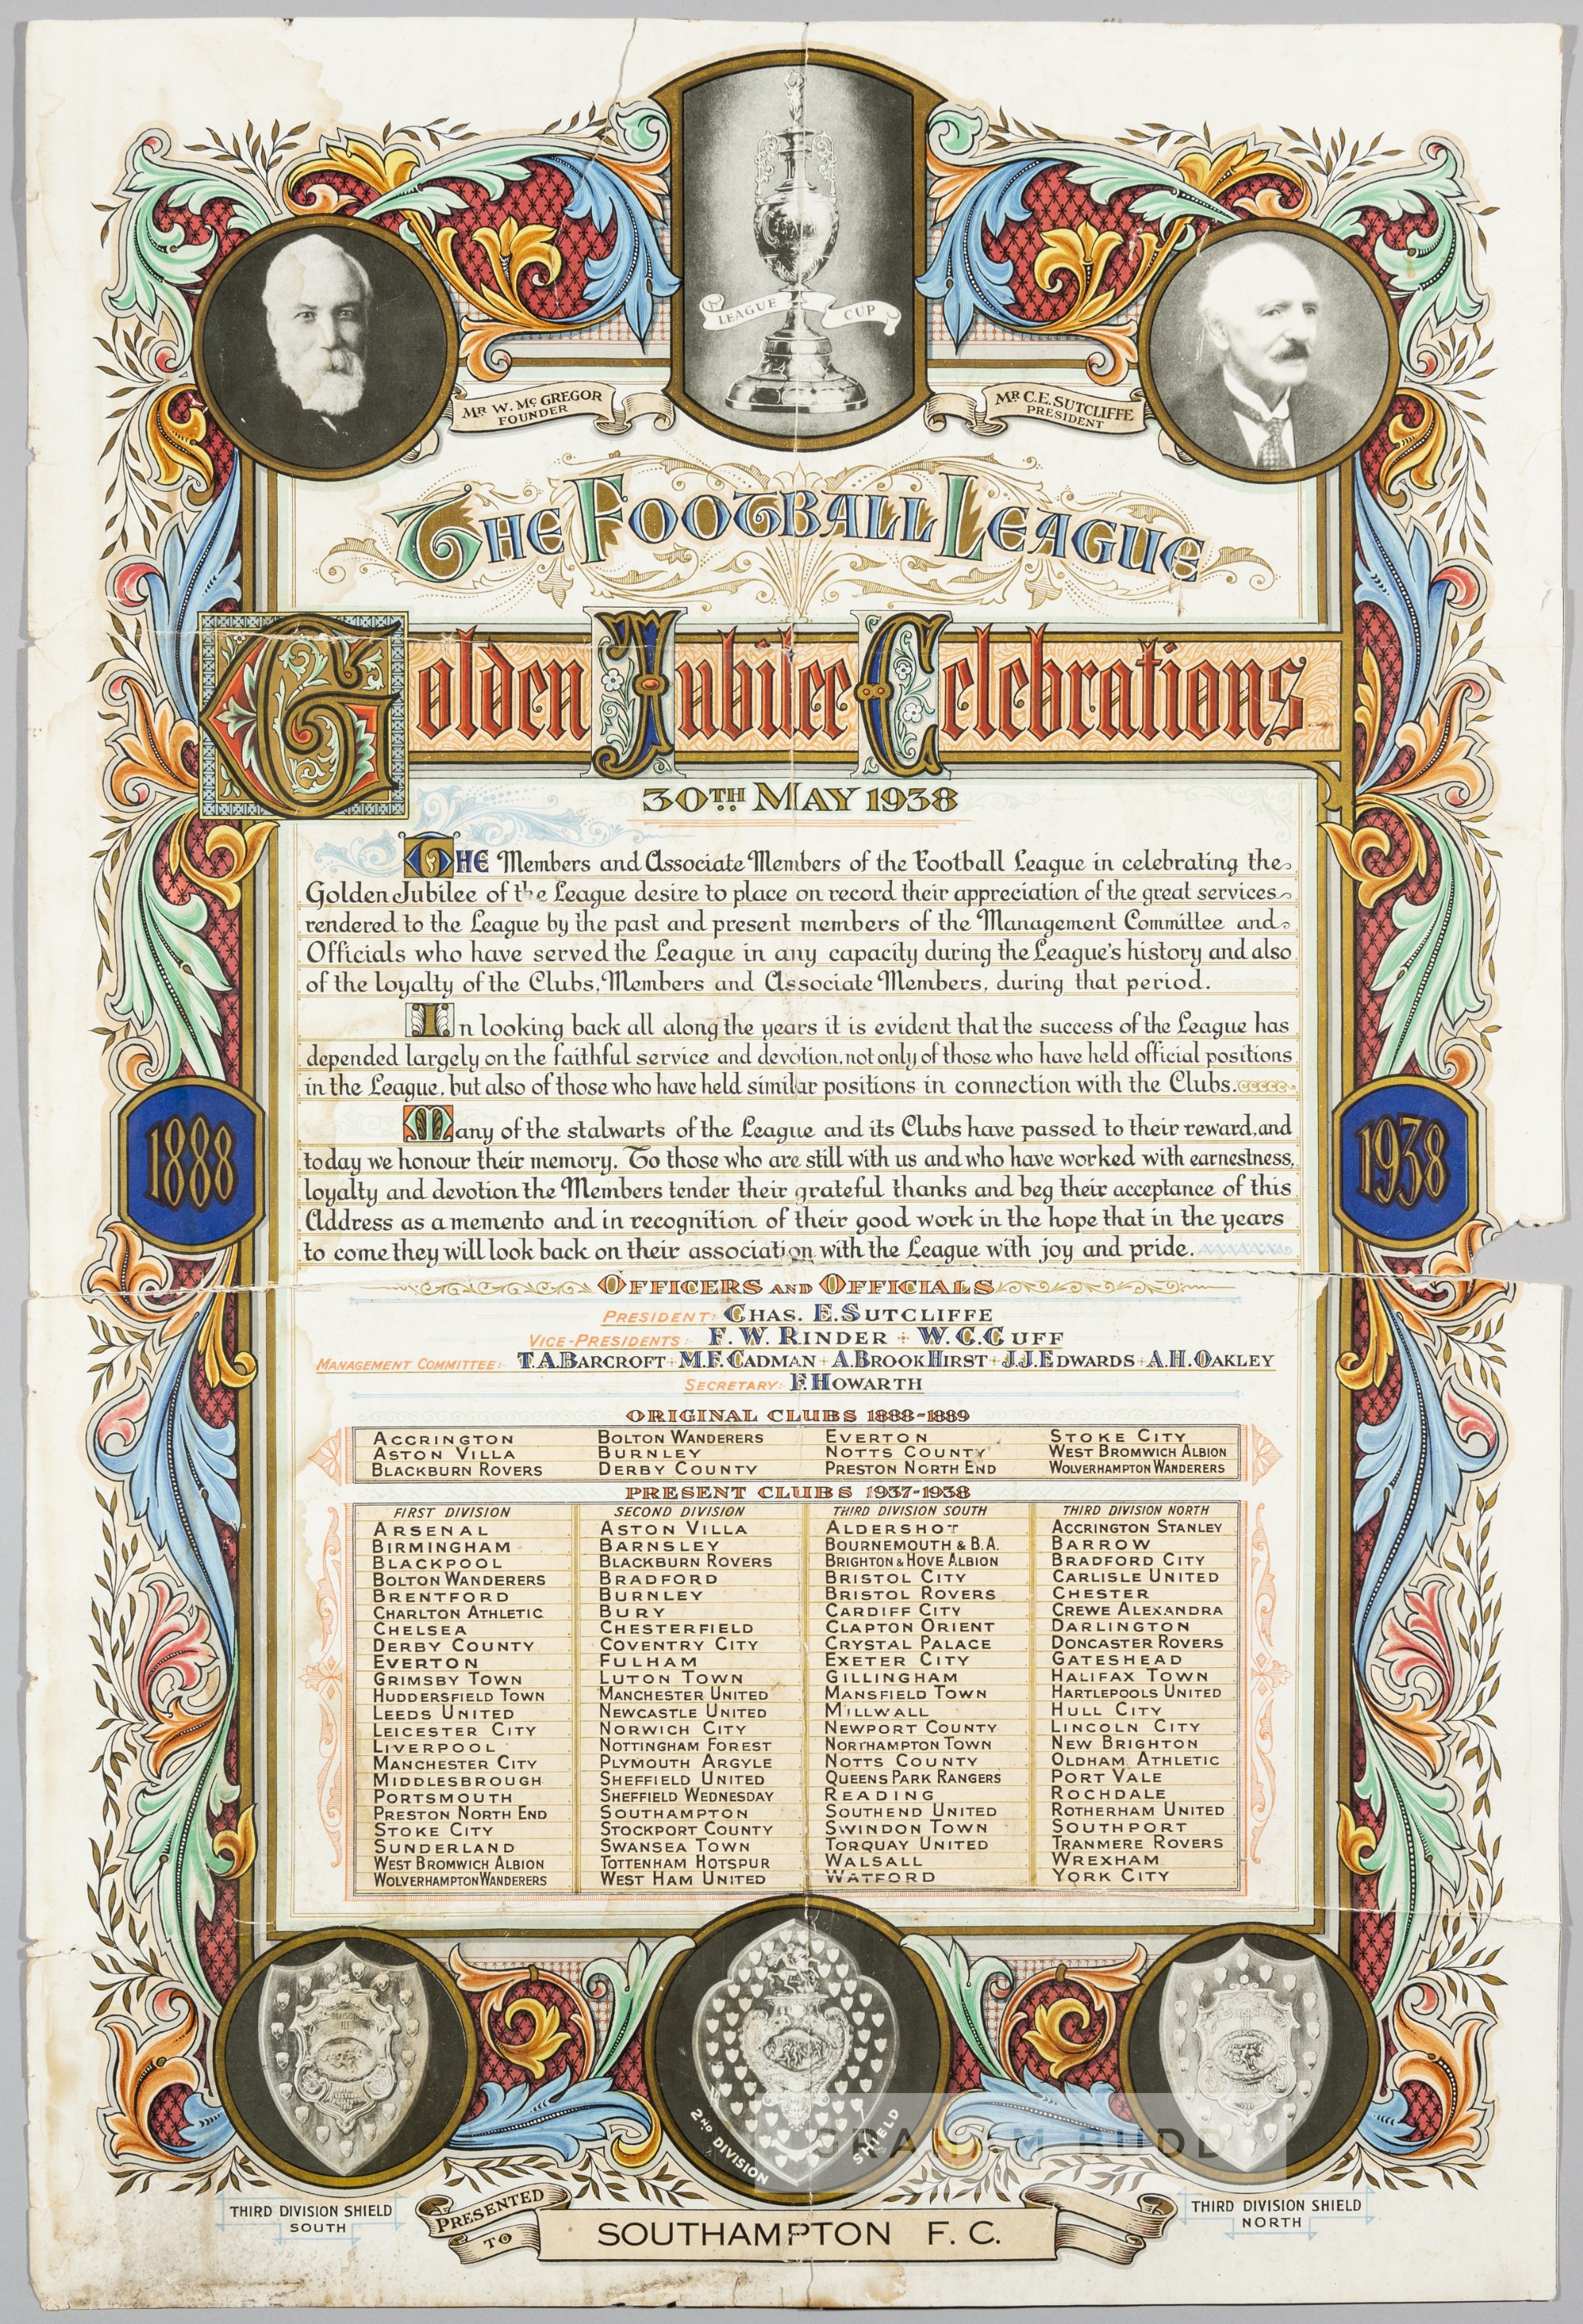 LEAGUE CUP
MR W. MCGREGOR
FOUNDER
MR C.E. SUTCLIFFE
PRESIDENT
THE FOOTBALL LEAGUE
Golden Jubilee Celebrations
30TH MAY 1938
THE Members and Associate Members of the Football League in celebrating the
Golden Jubilee of the League desire to place on record their appreciation of the great services
rendered to the League by the past and present members of the Management Committee and
Officials who have served the League in any capacity during the League's history and also
of the loyalty of the Clubs, Members and Associate Members, during that period.
In looking back all along the years it is evident that the success of the League has
depended largely on the faithful service and devotion, not only of those who have held official positions
in the League, but also of those who have held similar positions in connection with the Clubs.
Many of the stalwarts of the League and its Clubs have passed to their reward, and
today we honour their memory. To those who are still with us and who have worked with earnestness,
loyalty and devotion the Members tender their grateful thanks and beg their acceptance of this
Address as a memento and in recognition of their good work in the hope that in the years
to come they will look back on their association with the League with joy and pride.
1888
1938
OFFICERS AND OFFICIALS
PRESIDENT: CHAS. E. SUTCLIFFE
VICE-PRESIDENTS: F. W. RINDER + W. C. CUFF
MANAGEMENT COMMITTEE: T.A. BARCROFT + M.F. CADMAN + A. BROOK HIRST + J.J. EDWARDS + A.H. OAKLEY
SECRETARY: F. HOWARTH
ORIGINAL CLUBS 1888-1889
ACCRINGTON BOLTON WANDERERS EVERTON STOKE CITY
ASTON VILLA BURNLEY NOTTS COUNTY WEST BROMWICH ALBION
BLACKBURN ROVERS DERBY COUNTY PRESTON NORTH END WOLVERHAMPTON WANDERERS
PRESENT CLUBS 1937-1938
FIRST DIVISION SECOND DIVISION THIRD DIVISION SOUTH THIRD DIVISION NORTH
ARSENAL ASTON VILLA ALDERSHOT ACCRINGTON STANLEY
BIRMINGHAM BARNSLEY BOURNEMOUTH & B.A. BARROW
BLACKPOOL BLACKBURN ROVERS BRIGHTON & HOVE ALBION BRADFORD CITY
BOLTON WANDERERS BRADFORD BRISTOL CITY CARLISLE UNITED
BRENTFORD BURNLEY BRISTOL ROVERS CHESTER
CHARLTON ATHLETIC BURY CARDIFF CITY CREWE ALEXANDRA
CHELSEA CHESTERFIELD CLAPTON ORIENT DARLINGTON
DERBY COUNTY COVENTRY CITY CRYSTAL PALACE DONCASTER ROVERS
EVERTON FULHAM EXETER CITY GATESHEAD
GRIMSBY TOWN LUTON TOWN GILLINGHAM HALIFAX TOWN
HUDDERSFIELD TOWN MANCHESTER UNITED MANSFIELD TOWN HARTLEPOOLS UNITED
LEEDS UNITED NEWCASTLE UNITED MILLWALL HULL CITY
LEICESTER CITY NORWICH CITY NEWPORT COUNTY LINCOLN CITY
LIVERPOOL NOTTINGHAM FOREST NORTHAMPTON TOWN NEW BRIGHTON
MANCHESTER CITY PLYMOUTH ARGYLE NOTTS COUNTY OLDHAM ATHLETIC
MIDDLESBROUGH SHEFFIELD UNITED QUEENS PARK RANGERS PORT VALE
PORTSMOUTH SHEFFIELD WEDNESDAY READING ROCHDALE
PRESTON NORTH END SOUTHAMPTON SOUTHEND UNITED ROTHERHAM UNITED
STOKE CITY STOCKPORT COUNTY SWINDON TOWN SOUTHPORT
SUNDERLAND SWANSEA TOWN TORQUAY UNITED TRANMERE ROVERS
WEST BROMWICH ALBION TOTTENHAM HOTSPUR WALSALL WREXHAM
WOLVERHAMPTON WANDERERS WEST HAM UNITED WATFORD YORK CITY
2ND DIVISION SHIELD
GRAHAM BUDD
THIRD DIVISION SHIELD
SOUTH
PRESENTED
TO
SOUTHAMPTON F.C.
THIRD DIVISION SHIELD
NORTH